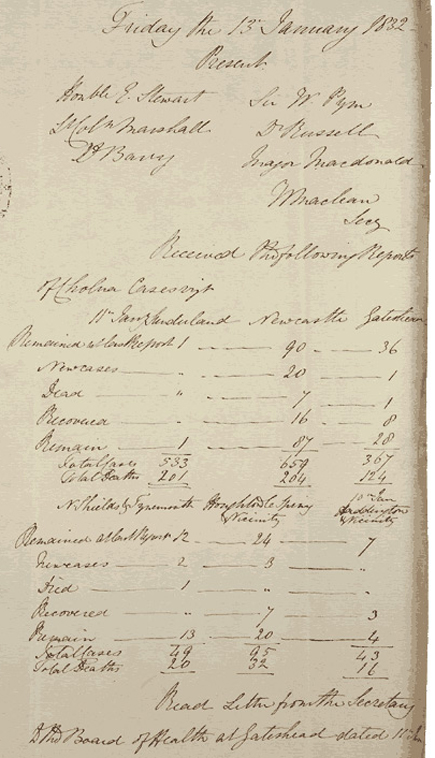 Friday the 13th January 1832
Present
Honble E. Stewart Sir W Pym
Lt Coln Marshall Dr Russell
Dr Barry Major Macdonald
W Maclean
Secy
Received the following Reports
of Cholera Cases vizt
11th Jany Sunderland Newcastle Gateshead
Remained at last Report 1 90 36
New cases " 20 1
Dead " 7 1
Recovered " 16 8
Remain 1 87 28
Total Cases 533 659 367
Total Deaths 201 204 124
N Shields & Tynemouth Houghton le Spring & Vicinity 10th Jan Haddington & Vicinity
Remained at last Report 12 24 7
New cases 2 3 "
Died 1 " "
Recovered " 7 3
Remain 13 20 4
Total Cases 49 95 43
Total Deaths 20 32 16
Read Letter from the Secretary
to the Board of Health at Gateshead dated 11th Jan